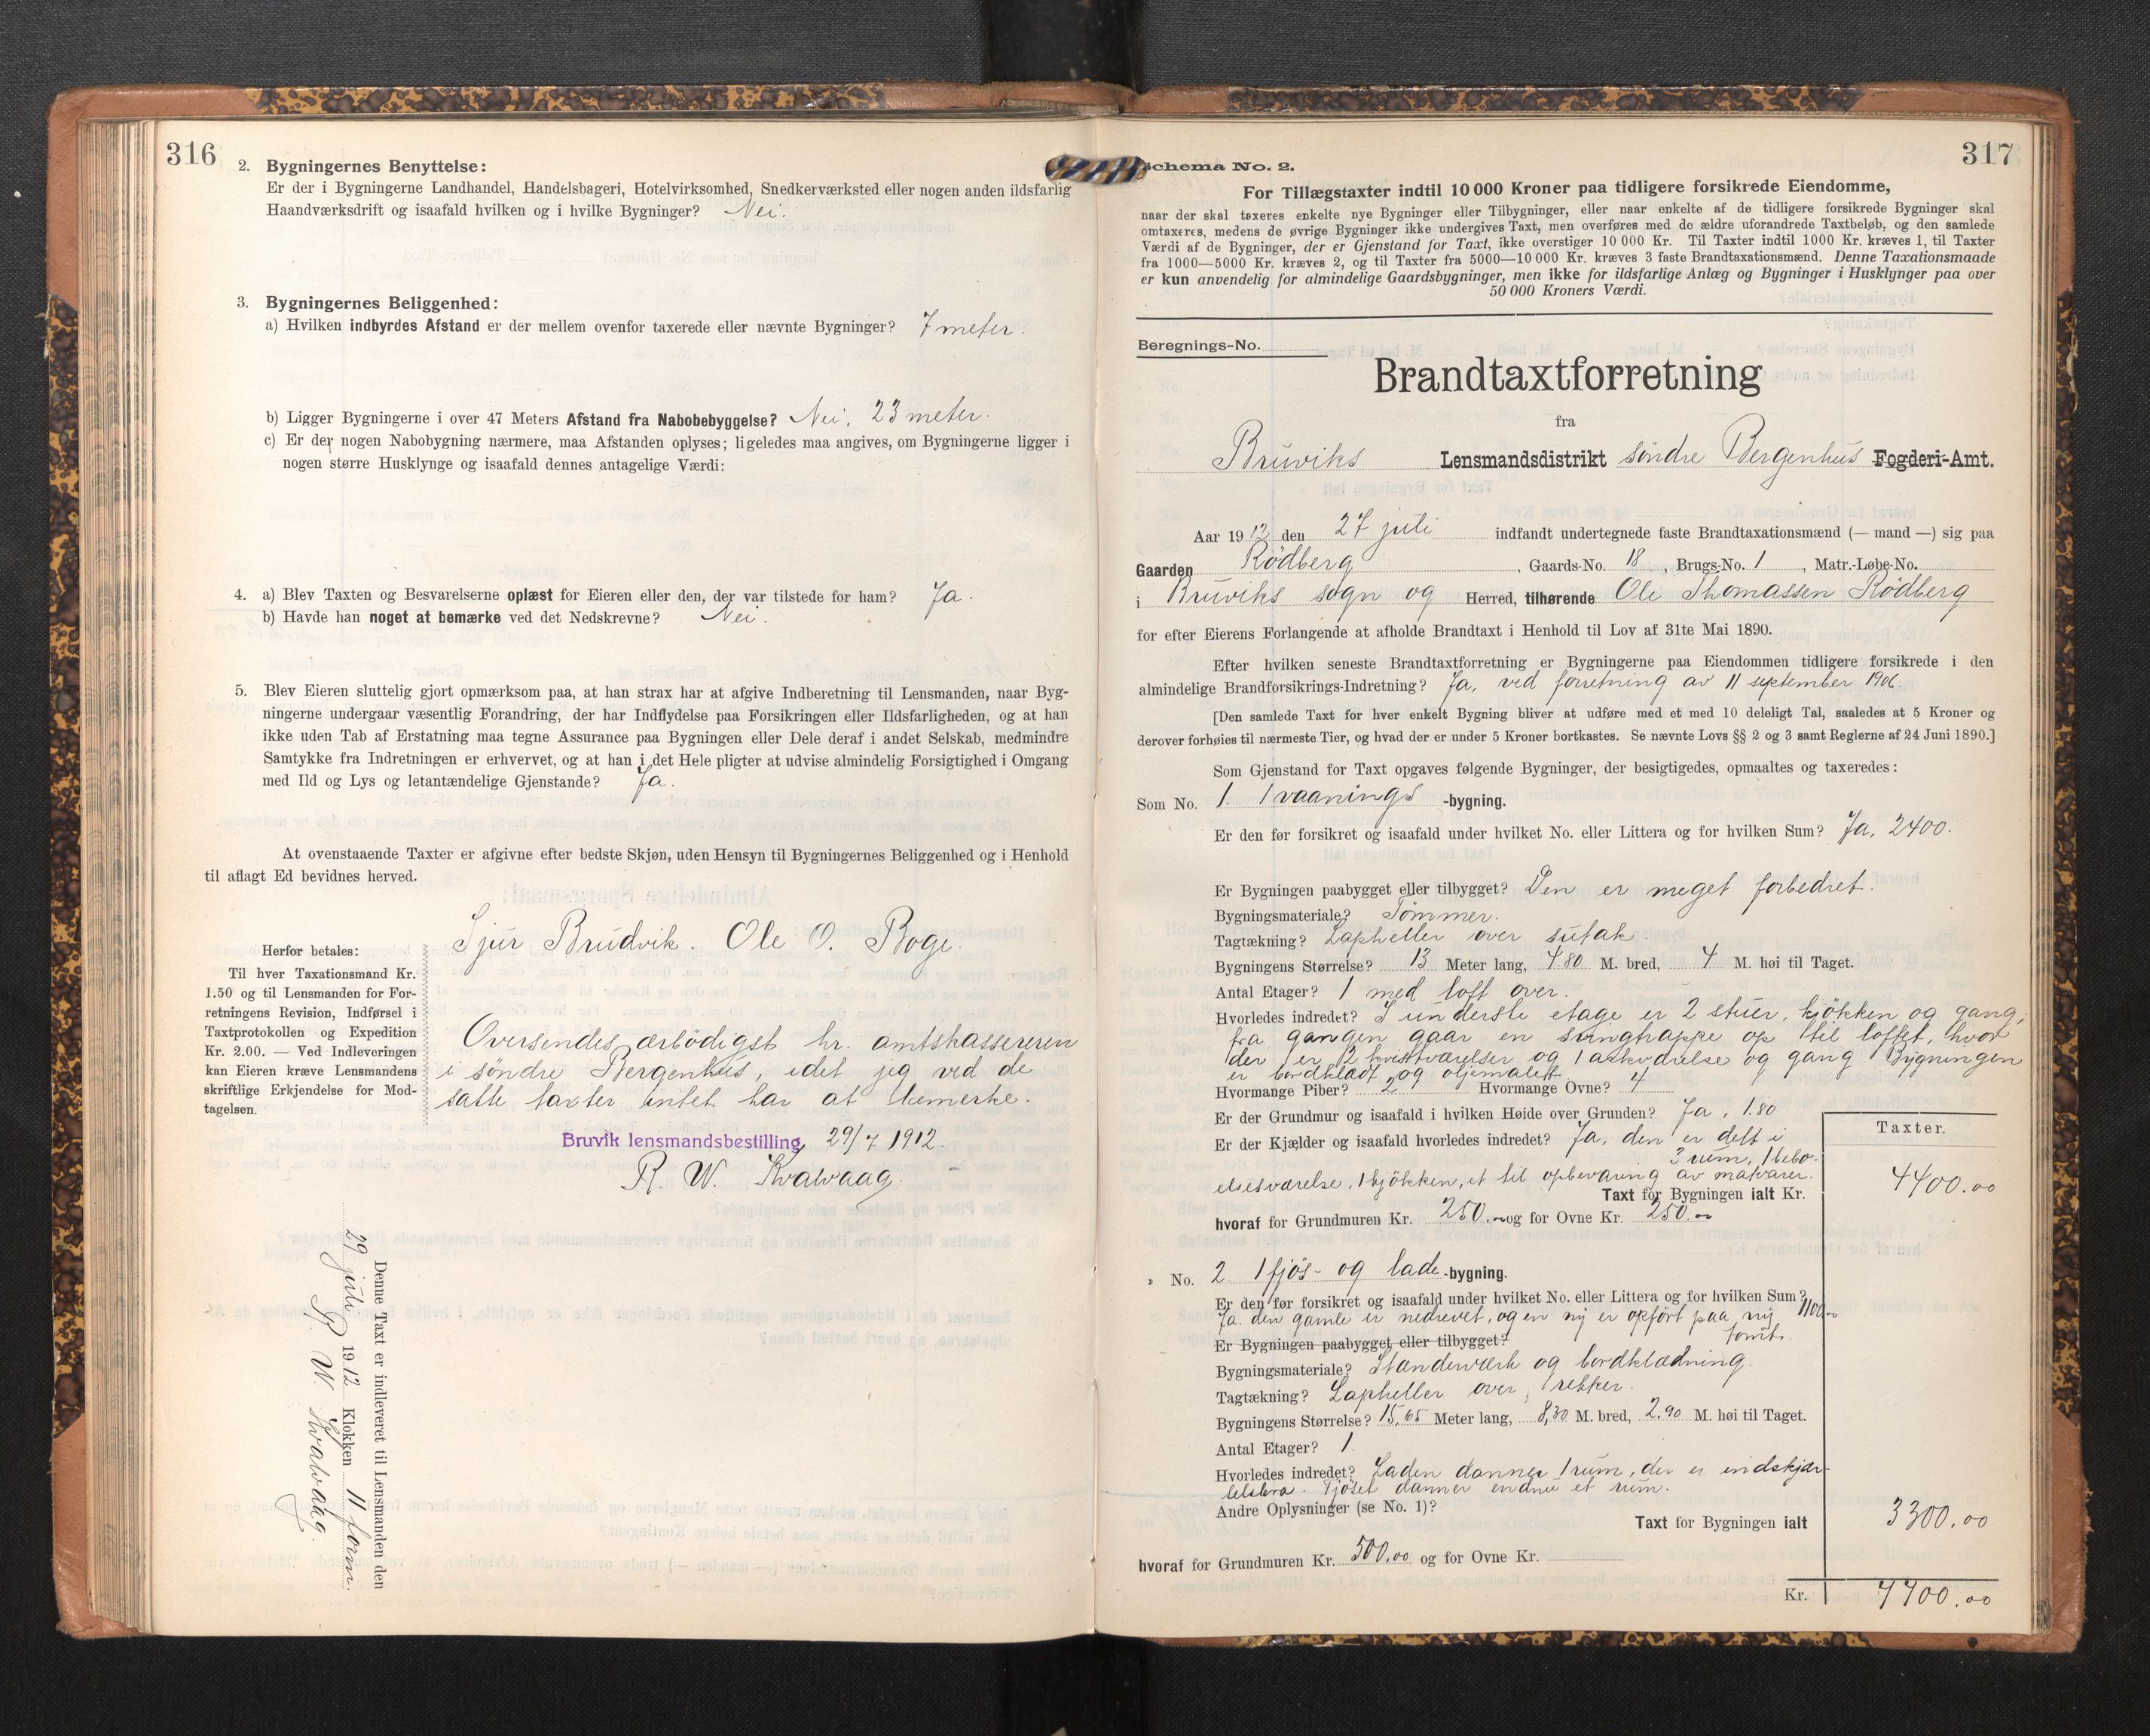 316
2. Bygningernes Benyttelse:
Er der i Bygningerne Landhandel, Handelsbageri, Hotelvirksomhed, Snedkerværksted eller nogen anden ildsfarlig
Haandværksdrift og isaafald hvilken og i hvilke Bygninger? Nei.
3. Bygningernes Beliggenhed:
a) Hvilken indbyrdes Afstand er der mellem ovenfor taxerede eller nævnte Bygninger? 7 meter.
b) Ligger Bygningerne i over 47 Meters Afstand fra Nabobebyggelse? Nei, 23 meter.
c) Er der nogen Nabobygning nærmere, maa Afstanden oplyses; ligeledes maa angives, om Bygningerne ligger i
nogen større Husklynge og isaafald dennes antagelige Værdi:
4. a) Blev Taxten og Besvarelserne oplæst for Eieren eller den, der var tilstede for ham? Ja.
b) Havde han noget at bemærke ved det Nedskrevne? Nei.
5. Blev Eieren sluttelig gjort opmærksom paa, at han strax har at afgive Indberetning til Lensmanden, naar Byg-
ningerne undergaar væsentlig Forandring, der har Indflydelse paa Forsikringen eller Ildsfarligheden, og at han
ikke uden Tab af Erstatning maa tegne Assurance paa Bygningen eller Dele deraf i andet Selskab, medmindre
Samtykke fra Indretningen er erhvervet, og at han i det Hele pligter at udvise almindelig Forsigtighed i Omgang
med Ild og Lys og letantændelige Gjenstande? Ja.
At ovenstaaende Taxter er afgivne efter bedste Skjøn, uden Hensyn til Bygningernes Beliggenhed og i Henhold
til aflagt Ed bevidnes herved.
Sjur Brudvik. Ole O. Boge.
Herfor betales:
Til hver Taxationsmand Kr.
1.50 og til Lensmanden for For-
retningens Revision, Indførsel i
Taxtprotokollen og Expedition
Kr. 2.00. — Ved Indleveringen
kan Eieren kræve Lensmandens
skriftlige Erkjendelse for Mod-
tagelsen.
Oversendes ærbödigst hr. amtskassereren
i söndre Bergenhus, idet jeg ved de
satte taxter intet har at bemerke.
Bruvik lensmandsbestilling, 29/7 1912.
R. W. Kvalvaag.
Denne Taxt er indleveret til Lensmanden den
29 juli 1912 Klokken 11 form.
R. W. Kvalvaag.
317
Schema No. 2.
For Tillægstaxter indtil 10 000 Kroner paa tidligere forsikrede Eiendomme,
naar der skal taxeres enkelte nye Bygninger eller Tilbygninger, eller naar enkelte af de tidligere forsikrede Bygninger skal
omtaxeres, medens de øvrige Bygninger ikke undergives Taxt, men overføres med de ældre uforandrede Taxtbeløb, og den samlede
Værdi af de Bygninger, der er Gjenstand for Taxt, ikke overstiger 10 000 Kr. Til Taxter indtil 1000 Kr. kræves 1, til Taxter
fra 1000—5000 Kr. kræves 2, og til Taxter fra 5000—10 000 Kr. kræves 3 faste Brandtaxationsmænd. Denne Taxationsmaade
er kun anvendelig for almindelige Gaardsbygninger, men ikke for ildsfarlige Anlæg og Bygninger i Husklynger paa over
50 000 Kroners Værdi.
Beregnings-No.
Brandtaxtforretning
fra
Bruviks Lensmandsdistrikt söndre Bergenhus Fogderi-Amt.
Aar 1912 den 27 juli indfandt undertegnede faste Brandtaxationsmænd (— mand —) sig paa
Gaarden Rödberg, Gaards-No. 18, Brugs-No. 1, Matr.-Løbe-No.
i Bruviks sogn og Herred, tilhørende Ole Thomassen Rödberg
for efter Eierens Forlangende at afholde Brandtaxt i Henhold til Lov af 31te Mai 1890.
Efter hvilken seneste Brandtaxtforretning er Bygningerne paa Eiendommen tidligere forsikrede i den
almindelige Brandforsikrings-Indretning? Ja, ved forretning av 11 september 1906.
[Den samlede Taxt for hver enkelt Bygning bliver at udføre med et med 10 deleligt Tal, saaledes at 5 Kroner og
derover forhøies til nærmeste Tier, og hvad der er under 5 Kroner bortkastes. Se nævnte Lovs §§ 2 og 3 samt Reglerne af 24 Juni 1890.]
Som Gjenstand for Taxt opgaves følgende Bygninger, der besigtigedes, opmaaltes og taxeredes:
Som No. 1. 1 vaanings -bygning.
Er den før forsikret og isaafald under hvilket No. eller Littera og for hvilken Sum? Ja, 2400.
Er Bygningen paabygget eller tilbygget? Den er meget forbedret.
Bygningsmateriale? Tömmer.
Tagtækning? Lapheller over sutak.
Bygningens Størrelse? 13 Meter lang, 4.80 M. bred, 4 M. høi til Taget.
Antal Etager? 1 med loft over.
Hvorledes indredet? I underste etage er 2 stuer, kjökken og gang;
fra gangen gaar en svingtrappe op til loftet, hvor
der er 2 kvistværelser og 1 arkværelse og gang Bygningen
er bordklædt og oljemalett
Hvormange Piber? 2 Hvormange Ovne? 4
Er der Grundmur og isaafald i hvilken Høide over Grunden? Ja, 1.80
Er der Kjælder og isaafald hvorledes indredet? Ja, den er delt i
3 rum, 1 bebo-
elsesværelse, 1 kjökken, et til opbevaring av matvarer.
Taxter.
Taxt for Bygningen ialt Kr. 4400.00
hvoraf for Grundmuren Kr. 250.00 og for Ovne Kr. 250.00
" No. 2 1 fjös- og lade -bygning.
Er den før forsikret og isaafald under hvilket No. eller Littera og for hvilken Sum? 1100.00
Ja. den gamle er nedrevet, og en ny er opfört paa ny
tomt.
Er Bygningen paabygget eller tilbygget?
Bygningsmateriale? Standerværk og bordklædning.
Tagtækning? Lapheller over rekker.
Bygningens Størrelse? 15,65 Meter lang, 8,30 M. bred, 2.90 M. høi til Taget.
Antal Etager? 1.
Hvorledes indredet? Laden danner 1 rum, der er indskjær-
Fjöset danner endnu et rum.
Andre Oplysninger (se No. 1)?
Taxt for Bygningen ialt 3300.00
hvoraf for Grundmuren Kr. 500.00 og for Ovne Kr.
Kr. 7700.00